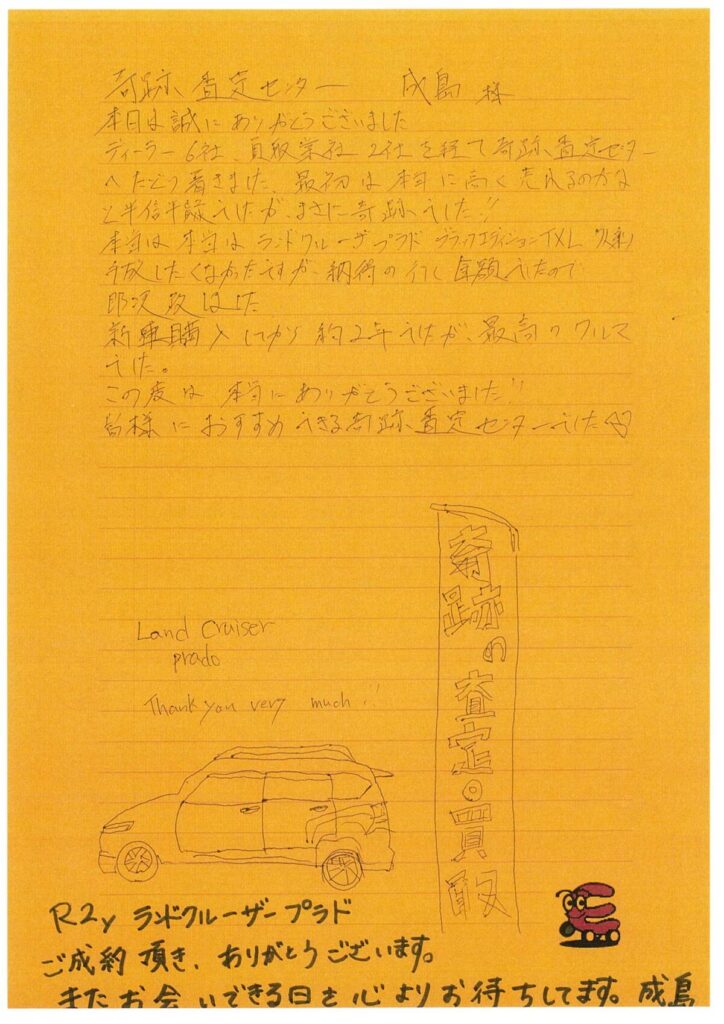 奇跡、査定センター 成島 様
本日は誠にありがとうございました
ディーラー6社、買取業社2社を経て奇跡、査定センター
へたどり着きました、最初は本当に高く売れるのかな
と半信半疑でしたが、まさに奇跡でした!!
本当は本当はランドクルーザープラド ブラックエディションTXL
手放したくなかったですが、納得の行く金額でしたので
即決
新車購入してから約2年でしたが、最高のクルマ
でした。
この度は本当にありがとうございました!!
皆様におすすめできる奇跡、査定センターでした
奇跡の査定。買取
Land Cruiser
prado
Thank you very much!!
R2y ランドクルーザープラド
ご成約頂き、ありがとうございます。
またお会いできる日を心よりお待ちしてます。成島